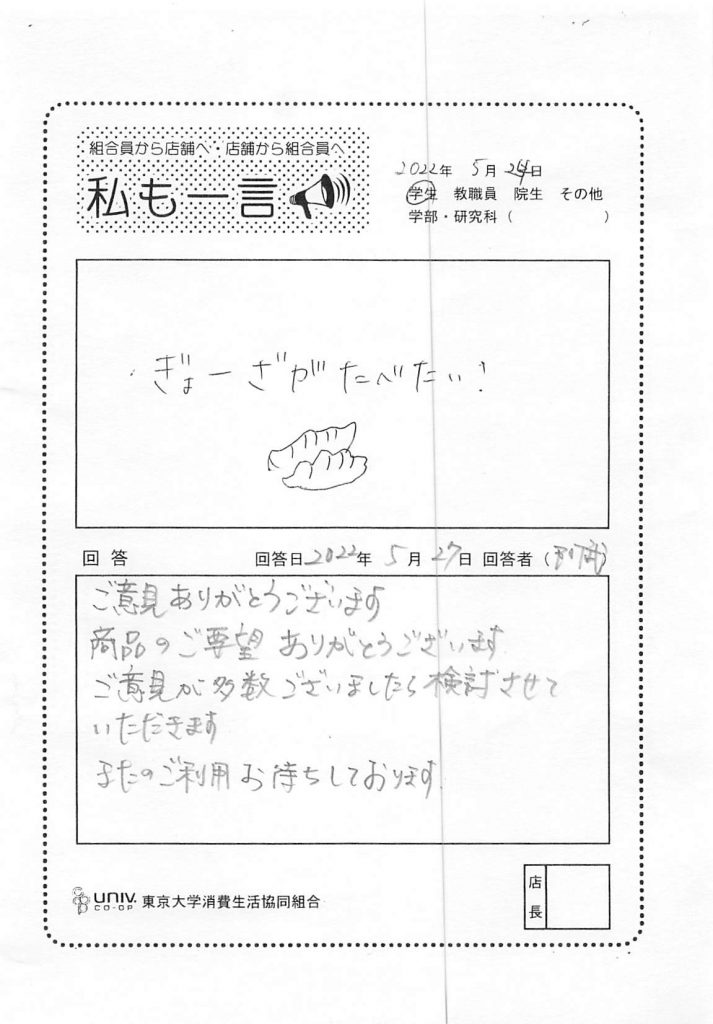 組合員から店舗へ・店舗から組合員へ
私も一言
2022年 5月 24日
学生 教職員 院生 その他
学部・研究科（ ）
・ぎょーざがたべたい!
回答 回答日2022年 5月 27日 回答者（ ）
ご意見ありがとうございます
商品のご要望 ありがとうございます
ご意見が多数ございましたら検討させて
いただきます
またのご利用お待ちしております。
UNIV. CO-OP 東京大学消費生活協同組合
店長